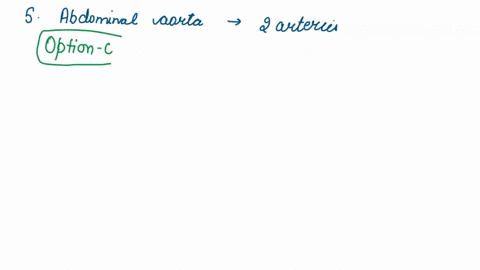 5. Abdominal aorta → 2 arteries
Option-c